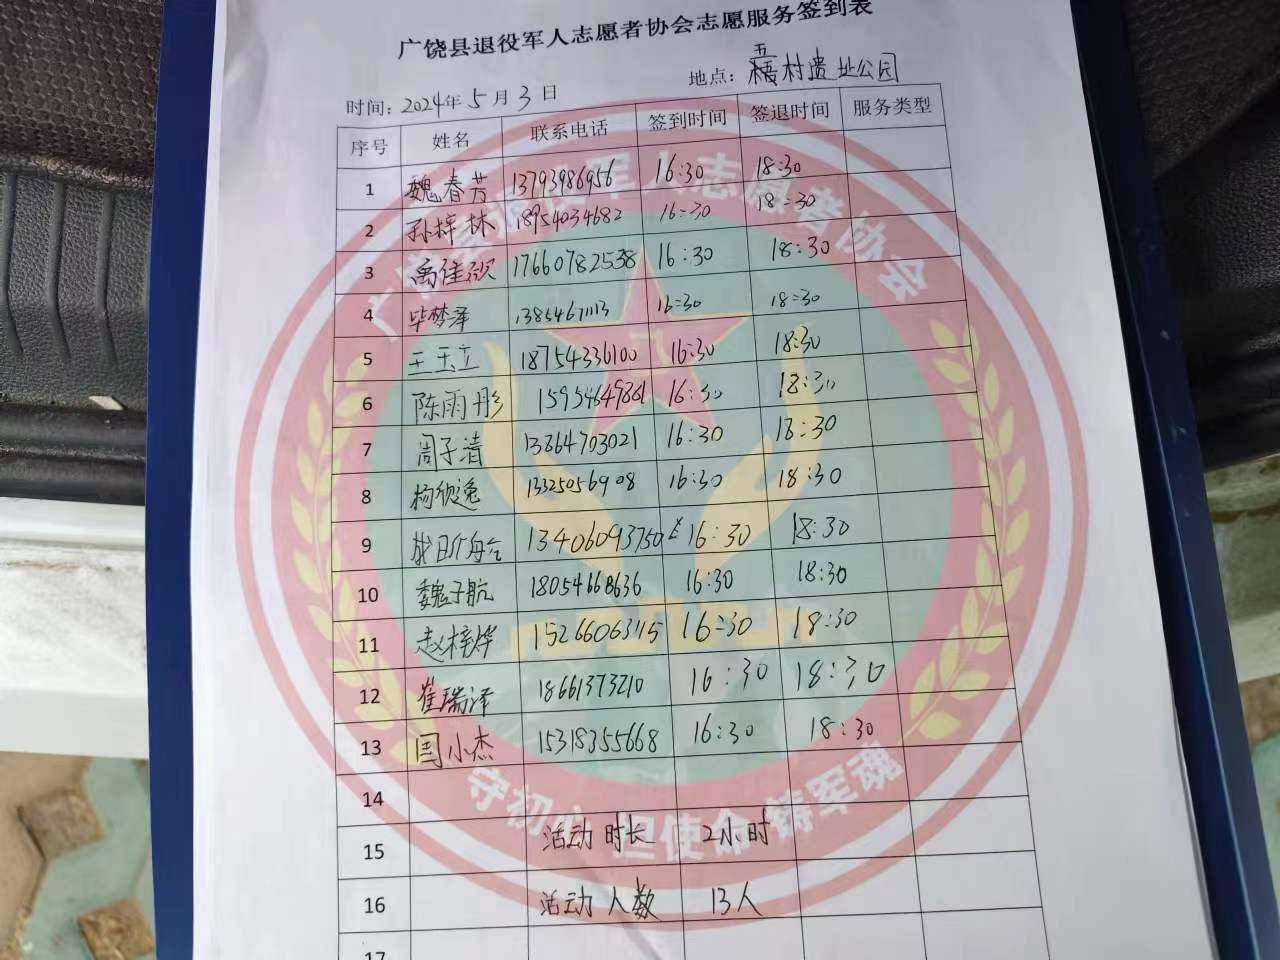 广饶县退役军人志愿者协会志愿服务签到表
时间：2024年 5月 3日 地点：五村遗址公园
序号 姓名 联系电话 签到时间 签退时间 服务类型
1 魏春芳 13793986956 16:30 18:30
2 孙梓林 18954034682 16:30 18:30
3 禹佳欣 17660782538 16:30 18:30
4 毕梦泽 13854671113 16:30 18:30
5 王玉立 18754336100 16:30 18:30
6 陈雨彤 15954649861 16:30 18:30
7 周子清 13864703021 16:30 18:30
8 杨欣逸 13325056908 16:30 18:30
9 13406093750 16:30 18:30
10 魏子航 18054668636 16:30 18:30
11 赵梓烨 15266063115 16:30 18:30
12 崔瑞泽 18661373210 16:30 18:30
13 国小杰 15318355668 16:30 18:30
14
15 活动时长 2小时
16 活动人数 13人
17
退役军人志愿者协会
守初心 担使命 铸军魂